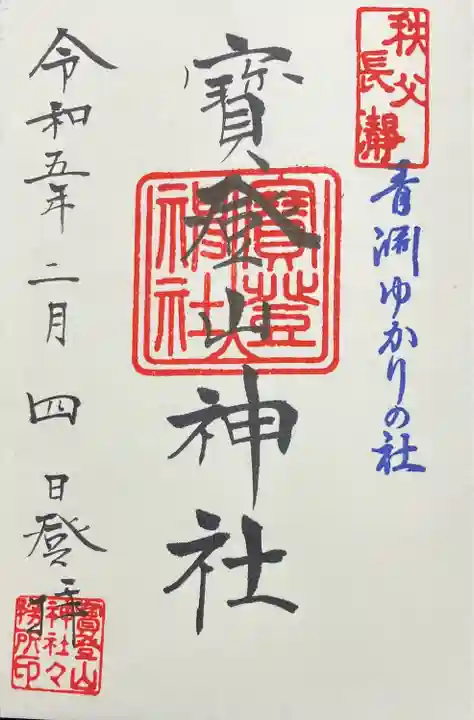 秩父
長瀞
青渊ゆかりの社
寳登山神社
寳登山
神社
令和五年二月四日登拝
寳登山
神社々
務所印